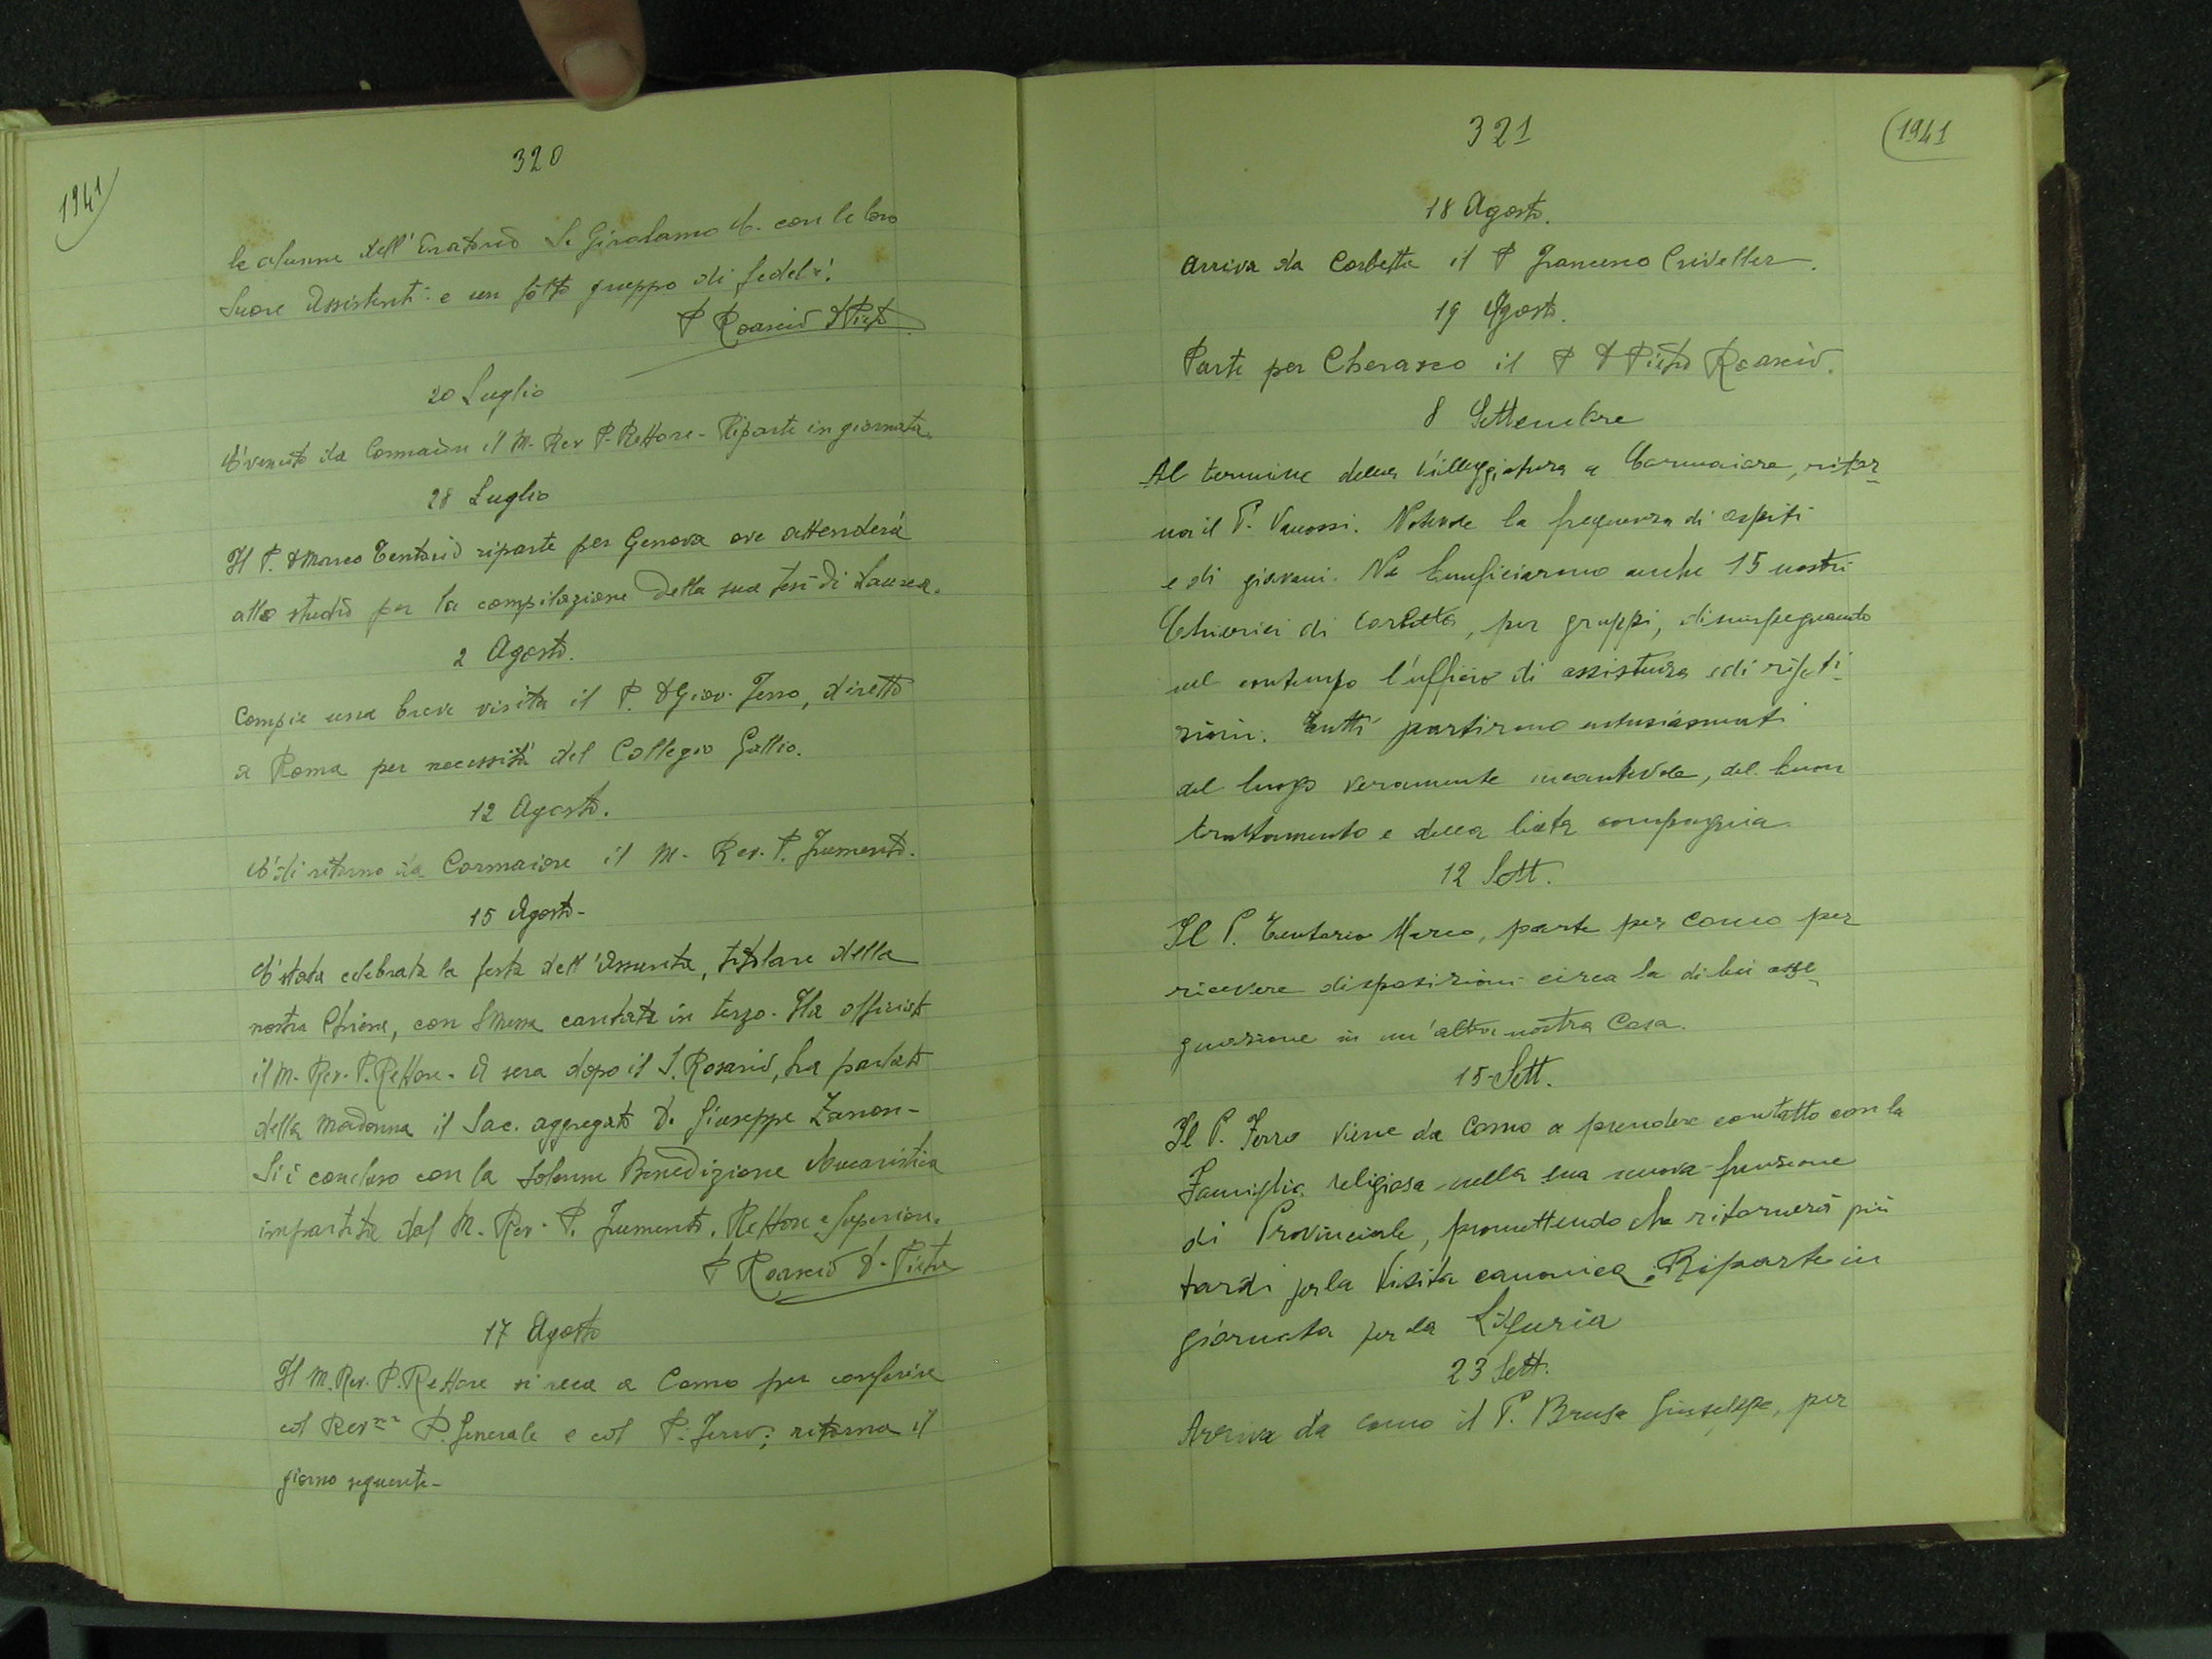 1941
320
le alunne dell'Oratorio S. Girolamo E. con le loro
Suore Assistenti e un folto gruppo di fedeli.
P Roascio D Pietro
20 Luglio
E' venuto da Cormaiore il M. Rev P. Rettore - Riparte in giornata.
28 Luglio
Il P. D Marco Tentorio riparte per Genova ove attenderà
allo studio per la compilazione della sua tesi di Laurea.
2 Agosto.
Compie una breve visita il P. D Giov. Ferro, diretto
a Roma per necessità del Collegio Gallio.
12 Agosto.
E' di ritorno da Cormaiore il M. Rev. P. Frumento.
15 Agosto -
E' stata celebrata la festa dell'Assunta, titolare della
nostra Chiesa, con S Messa cantata in terzo. Ha officiato
il M. Rev. P. Rettore. A sera dopo il S. Rosario, ha parlato
della Madonna il Sac. aggregato D. Giuseppe Zanon -
Si è concluso con la solenne Benedizione Eucaristica
impartita dal M. Rev. P. Frumento, Rettore e Superiore.
P Roascio D. Pietro
17 Agosto
Il M. Rev. P. Rettore si reca a Como per conferire
col Rev.mo P. Generale e col P. Ferro; ritorna il
giorno seguente -
321
1941
18 Agosto.
Arriva da Corbetta il P Francesco Criveller.
19 Agosto.
Parte per Cherasco il P D Pietro Roascio.
8 Settembre
Al termine della villeggiatura a Cormaiore, ritor
na il P. Vanossi. Notevole la frequenza di ospiti
e di giovani. Ne beneficiarono anche 15 nostri
Chierici di Corbetta, per gruppi, disimpegnando
nel contempo l'ufficio di assistenza e di ripeti-
zioni. Tutti partirono entusiasmati
del luogo veramente incantevole, del buon
trattamento e della lieta compagnia.
12 Sett.
Il P. Tentorio Marco, parte per Como per
ricevere disposizioni circa la di lui asse
gnazione in un'altra nostra Casa.
15 Sett.
Il P. Ferro viene da Como a prendere contatto con la
Famiglia religiosa nella sua nuova funzione
di Provinciale, promettendo che ritornerà più
tardi per la Visita canonica. Riparte in
giornata per la Liguria
23 Sett.
Arriva da Como il P. Brusa Giuseppe, per